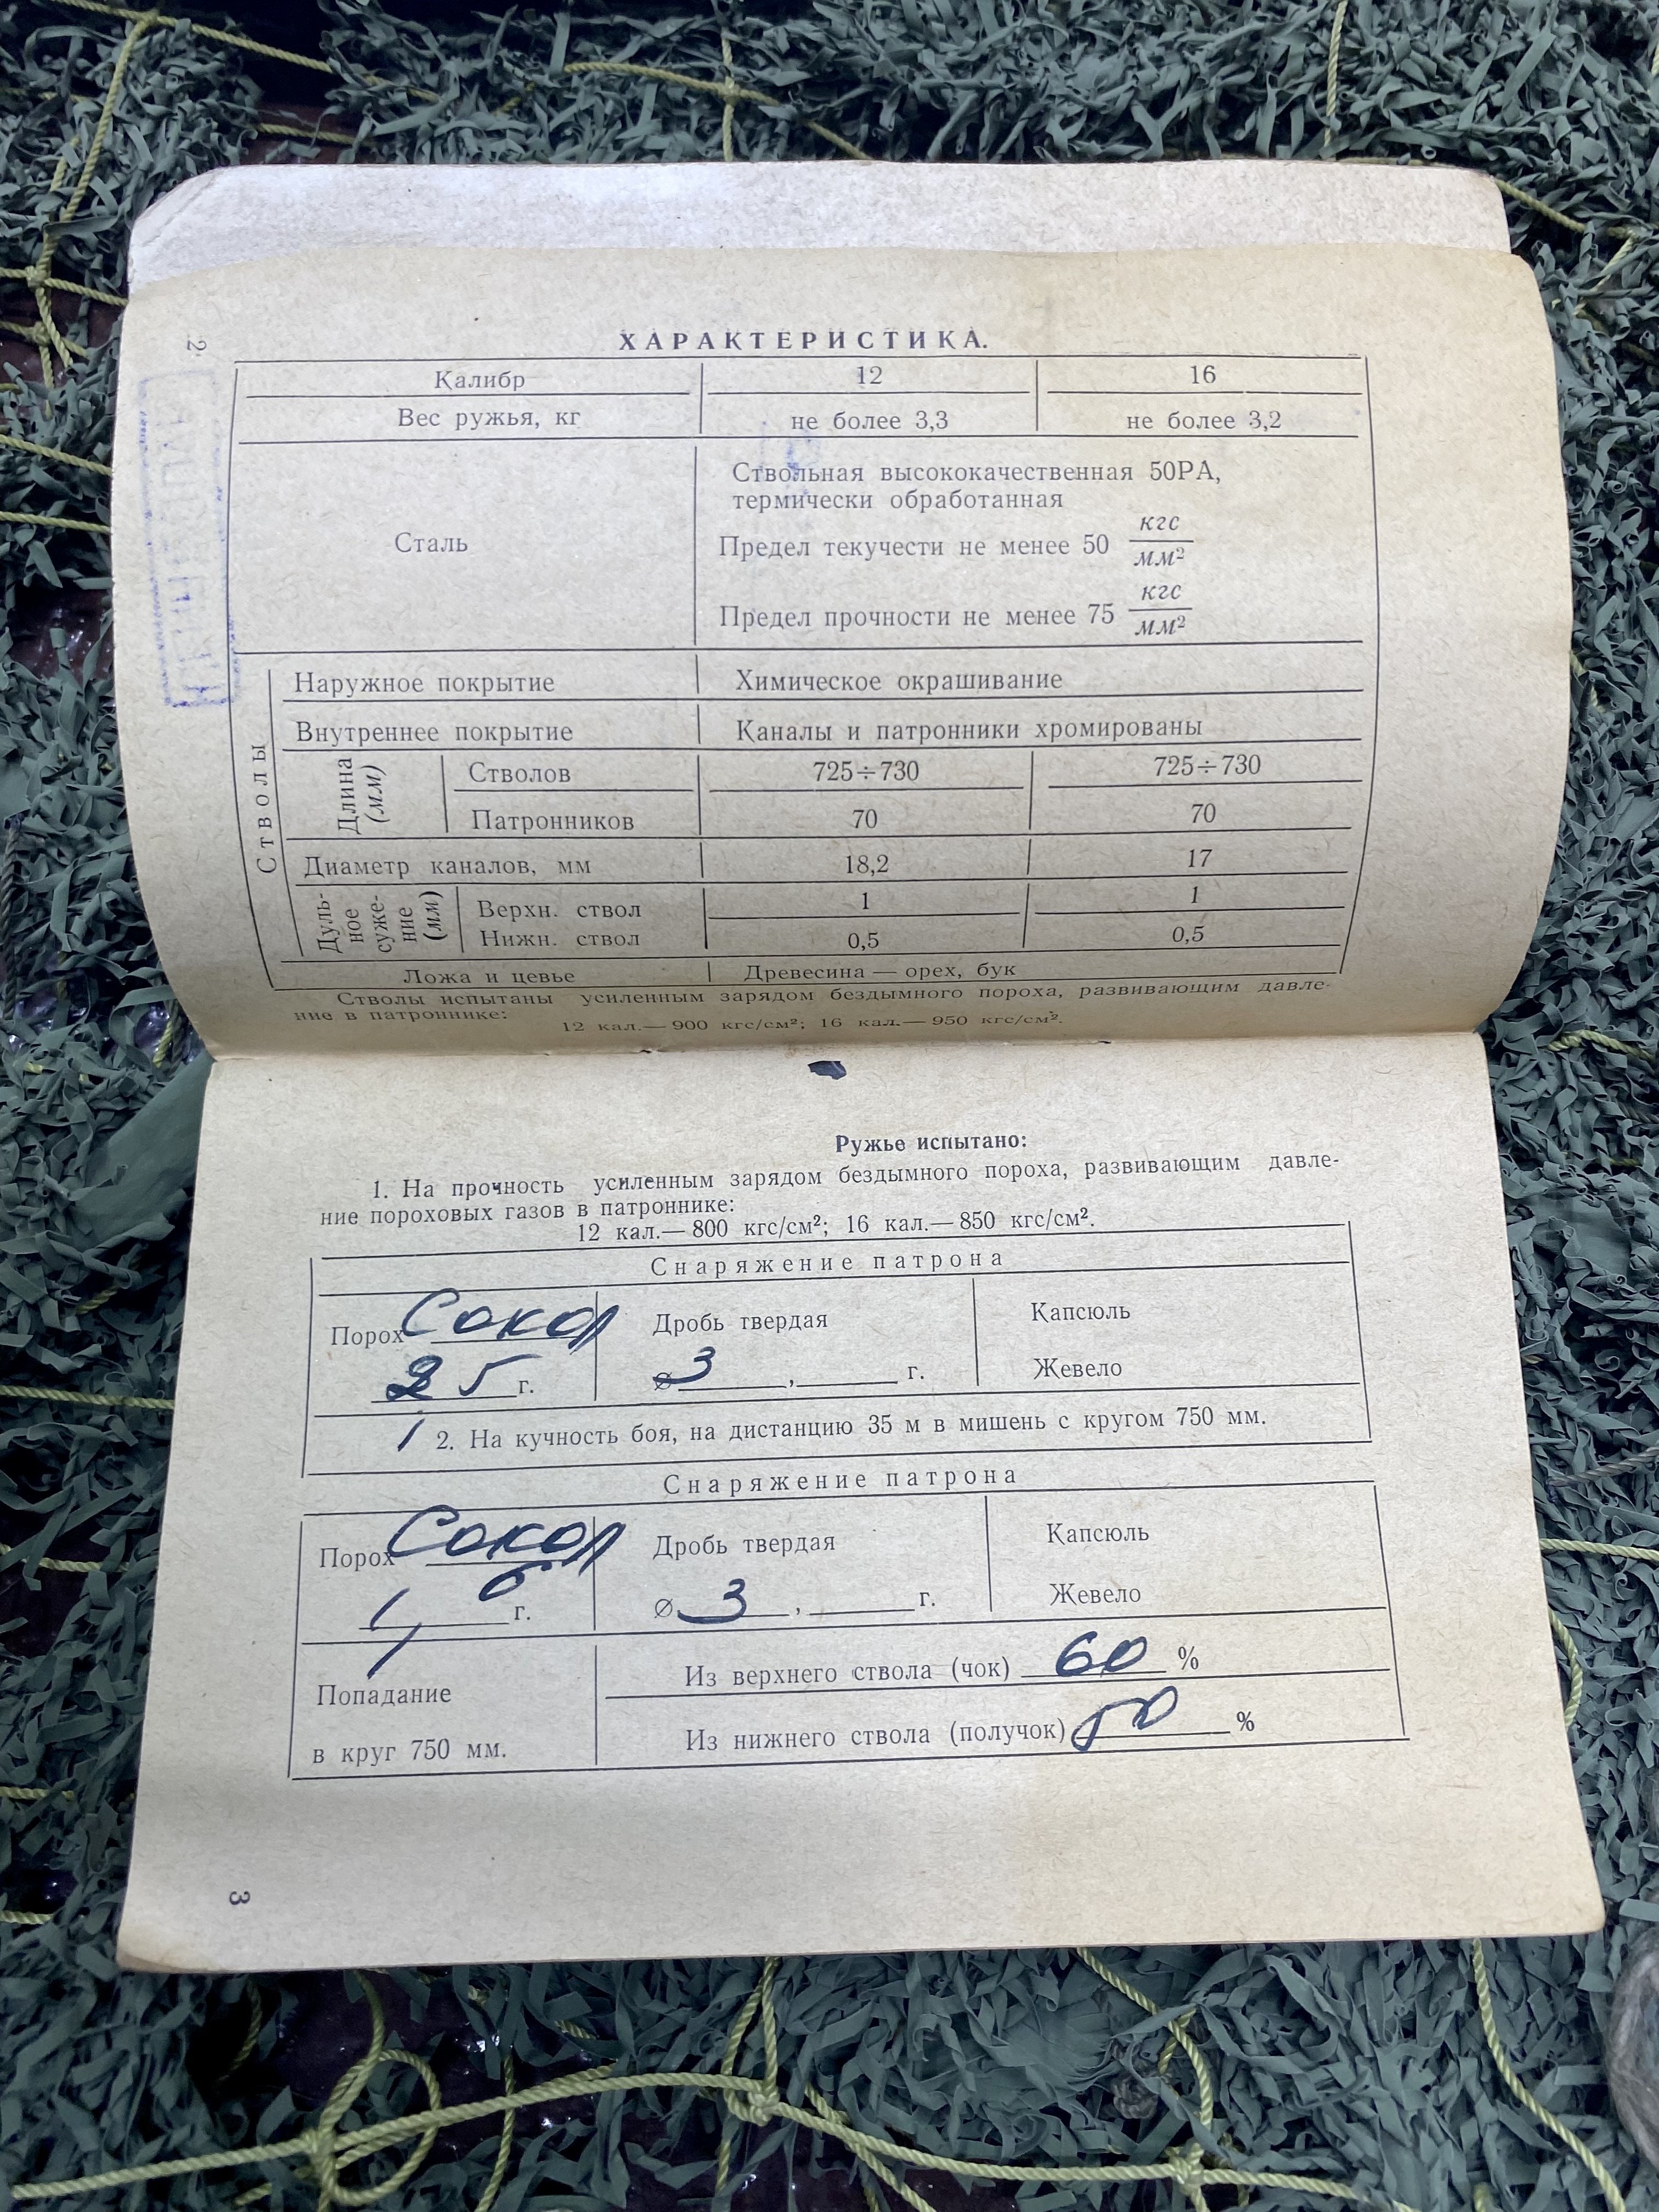 2
ХАРАКТЕРИСТИКА.
Калибр 12 16
Вес ружья, кг не более 3,3 не более 3,2
Сталь
Ствольная высококачественная 50РА,
термически обработанная
Предел текучести не менее 50 кгс/мм²
Предел прочности не менее 75 кгс/мм²
Стволы
Наружное покрытие Химическое окрашивание
Внутреннее покрытие Каналы и патронники хромированы
Длина (мм)
Стволов 725÷730 725÷730
Патронников 70 70
Диаметр каналов, мм 18,2 17
Дуль-
ное
суже-
ние
(мм)
Верхн. ствол 1 1
Нижн. ствол 0,5 0,5
Ложа и цевье Древесина — орех, бук
Стволы испытаны усиленным зарядом бездымного пороха, развивающим давле-
ние в патроннике:
12 кал.— 900 кгс/см²; 16 кал.— 950 кгс/см².
Ружье испытано:
1. На прочность усиленным зарядом бездымного пороха, развивающим давле-
ние пороховых газов в патроннике:
12 кал.— 800 кгс/см²; 16 кал.— 850 кгс/см².
Снаряжение патрона
Порох Сокол Дробь твердая Капсюль
2,5 г. ø 3 , г. Жевело
2. На кучность боя, на дистанцию 35 м в мишень с кругом 750 мм.
Снаряжение патрона
Порох Сокол Дробь твердая Капсюль
г. Ø 3 , г. Жевело
Попадание
в круг 750 мм.
Из верхнего ствола (чок) 60 %
Из нижнего ствола (получок) 50 %
3